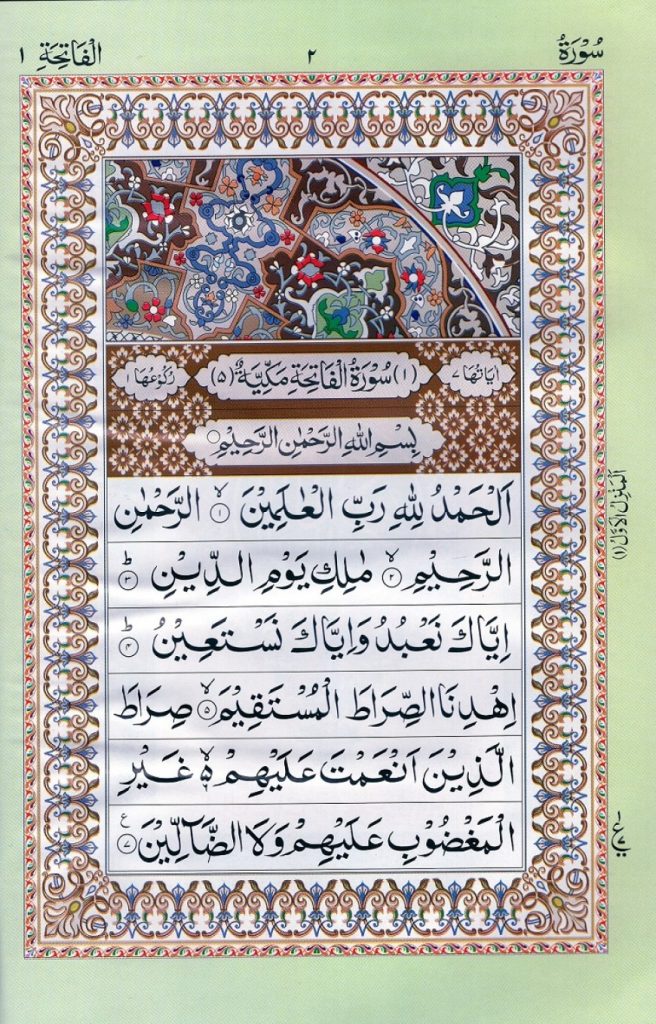 سُوْرَةُ ٢ الْفَاتِحَةِ ١
اٰيَاتُهَا ٧ (١) سُوْرَةُ الْفَاتِحَةِ مَكِّيَّةٌ (٥) رُكُوْعُهَا ١
بِسْمِ اللهِ الرَّحْمٰنِ الرَّحِيْمِ ○
اَلْحَمْدُ لِلهِ رَبِّ الْعٰلَمِيْنَ ۙ١ الرَّحْمٰنِ
الرَّحِيْمِ ۙ٢ مٰلِكِ يَوْمِ الدِّيْنِ ؕ٣
اِيَّاكَ نَعْبُدُ وَاِيَّاكَ نَسْتَعِيْنُ ؕ٤
اِهْدِنَا الصِّرَاطَ الْمُسْتَقِيْمَ ۙ٥ صِرَاطَ
الَّذِيْنَ اَنْعَمْتَ عَلَيْهِمْ ۙ۬ۦ غَيْرِ
الْمَغْضُوْبِ عَلَيْهِمْ وَلَا الضَّآلِّيْنَ ٧ۧ
اَلْمَنْزِلُ الْاَوَّلُ (١)